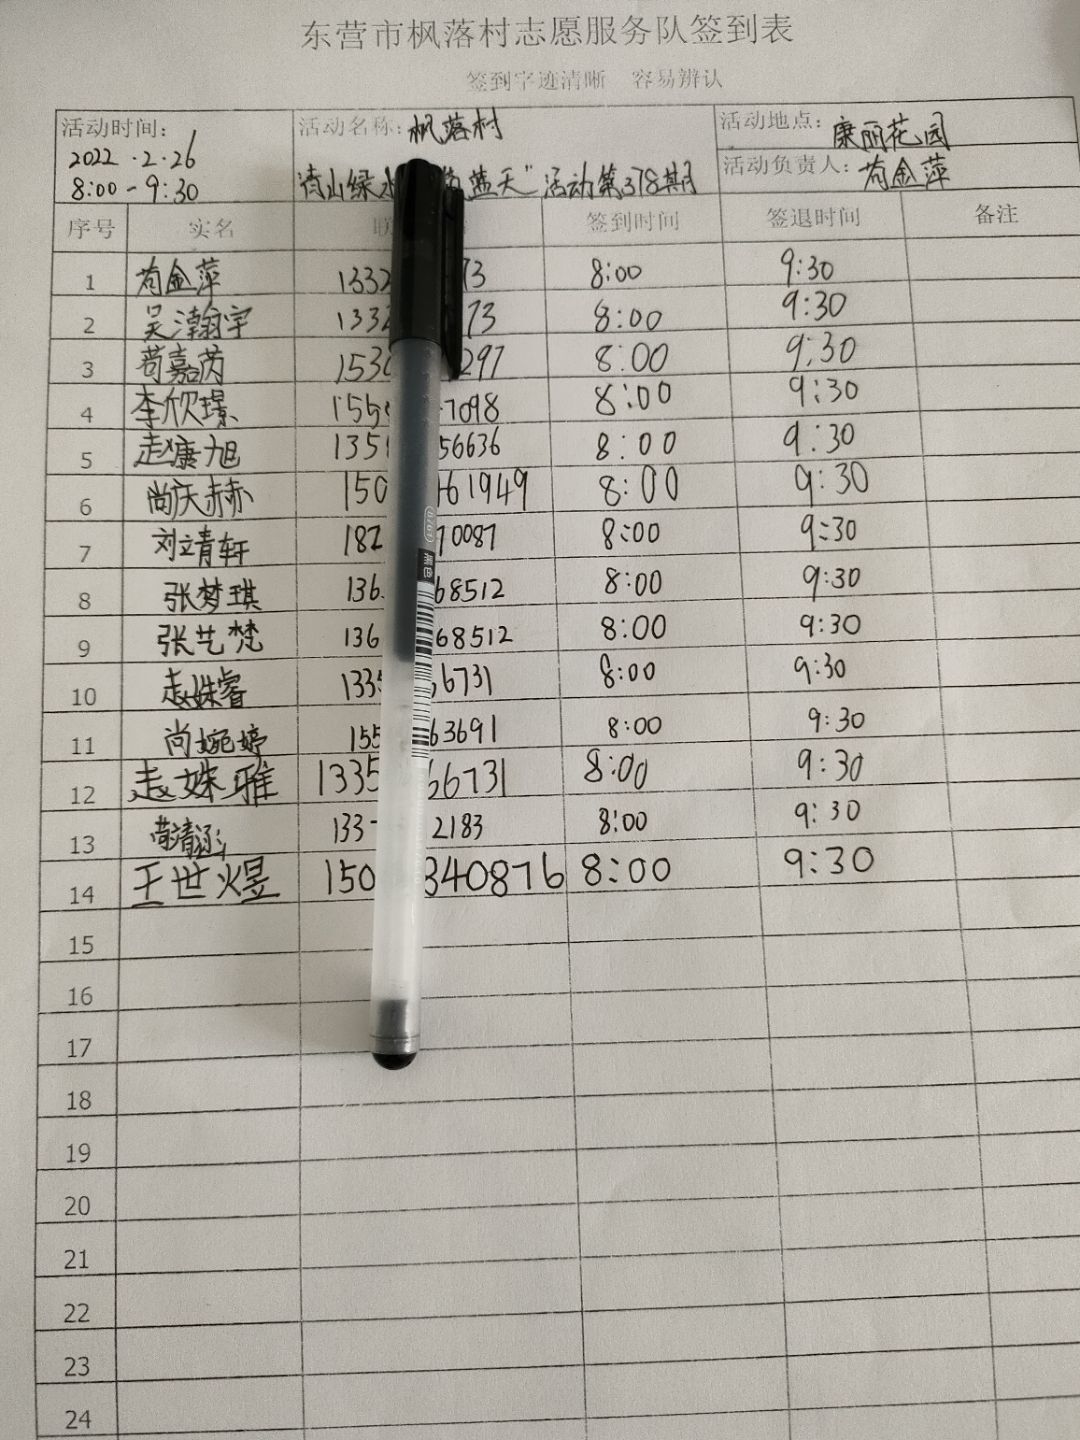 东营市枫落村志愿服务队签到表
签到字迹清晰 容易辨认
活动时间: 2022.2.26 8:00-9:30
活动名称: 枫落村 清山绿水 蓝天"活动第378期
活动地点: 康丽花园
活动负责人: 苟金萍
序号 实名 联 签到时间 签退时间 备注
1 苟金萍 1332 73 8:00 9:30
2 吴瀚宇 1332 73 8:00 9:30
3 苟嘉芮 153 297 8:00 9:30
4 李欣璟 155 7098 8:00 9:30
5 赵康旭 135 56636 8:00 9:30
6 尚庆赫 150 61949 8:00 9:30
7 刘立青轩 182 70087 8:00 9:30
8 张梦琪 136 68512 8:00 9:30
9 张艺梵 136 68512 8:00 9:30
10 赵姝睿 1335 66731 8:00 9:30
11 尚婉婷 155 63691 8:00 9:30
12 赵姝雅 1335 66731 8:00 9:30
13 苟清涵 133 2183 8:00 9:30
14 王世煜 150 340876 8:00 9:30
15
16
17
18
19
20
21
22
23
24